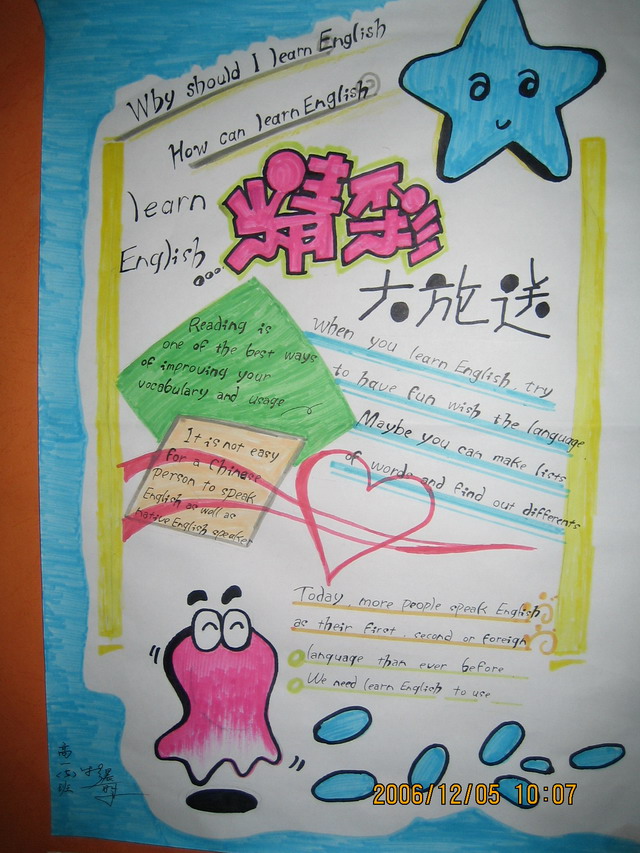 Why should I learn English
How can learn English
learn
English...
精彩
大放送
Reading is
one of the best ways
of improving your
vocabulary and usage
When you learn English, try
to have fun wish the language
Maybe you can make lists
of words and find out differents
It is not easy
for a Chinese
person to speak
English as well as
native English speaker
Today, more people speak English
as their first, second or foreign
language than ever before
We need learn English to use
高一(5)班
2006/12/05 10:07